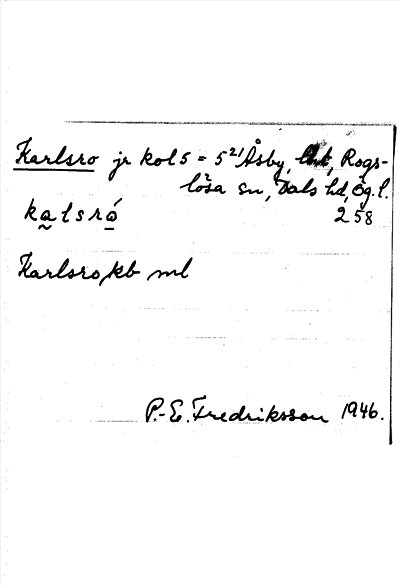 Karlsro jr kol 5 = 5²¹ Åsby, Rogs-
lösa sn, Dals hd, Ög.l.
kalsró 258
Karlsro kb ml
P.-E. Fredriksson 1946.